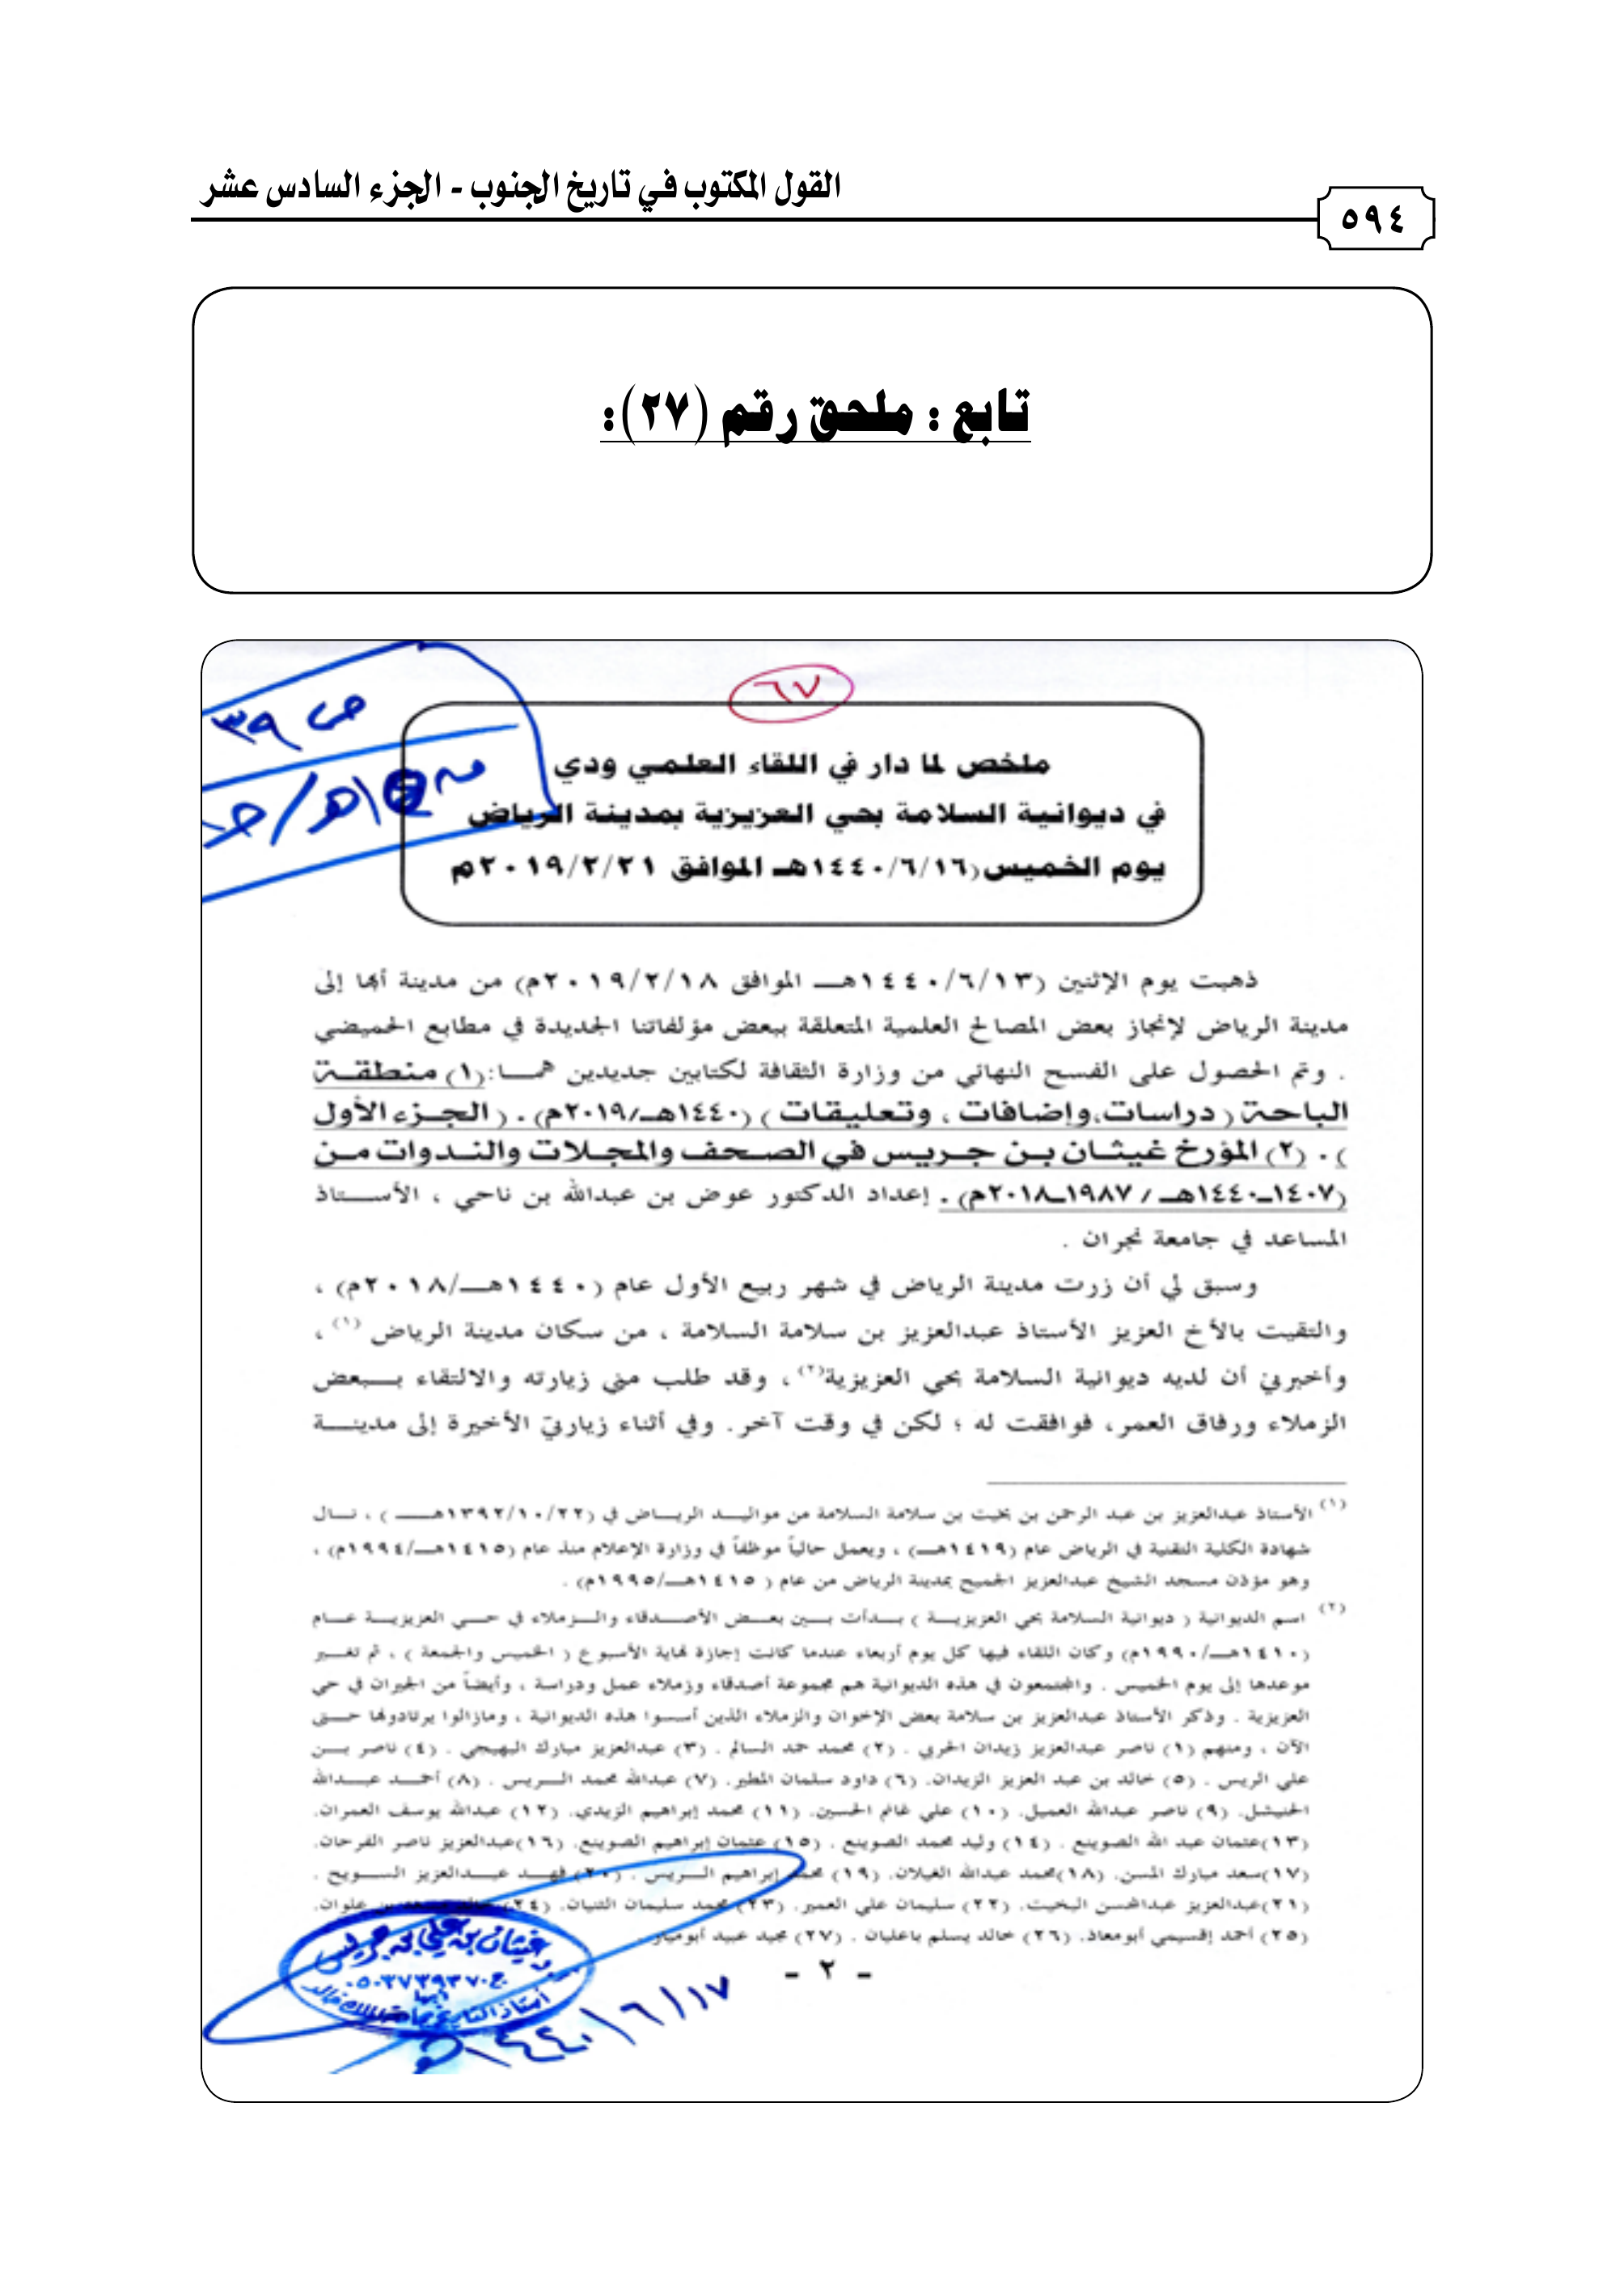 القول المكتوب في تاريخ الجنوب - الجزء السادس عشر
٥٩٤
تابع : ملحق رقم (٢٧):
٦٧
ص ٣٩
ملخص لما دار في اللقاء العلمي ودي
في ديوانية السلامة بحي العزيزية بمدينة الرياض
يوم الخميس(١٤٤٠/٦/١٦هـ الموافق ٢٠١٩/٢/٢١م
ذهبت يوم الإثنين (١٤٤٠/٦/١٣هـ الموافق ٢٠١٩/٢/١٨م) من مدينة أبها إلى
مدينة الرياض لإنجاز بعض المصالح العلمية المتعلقة ببعض مؤلفاتنا الجديدة في مطابع الحميضي
. وتم الحصول على الفسح النهائي من وزارة الثقافة لكتابين جديدين هما:(١) منطقة
الباحة (دراسات،وإضافات ، وتعليقات ) (١٤٤٠هـ/٢٠١٩م) . ( الجزء الأول
) . (٢) المؤرخ غيثان بن جريس في الصحف والمجلات والندوات من
(١٤٠٧ــ١٤٤٠هـ / ١٩٨٧ــ٢٠١٨م) . إعداد الدكتور عوض بن عبدالله بن ناحي ، الأستاذ
المساعد في جامعة نجران .
وسبق لي أن زرت مدينة الرياض في شهر ربيع الأول عام (١٤٤٠هـ/٢٠١٨م) ،
والتقيت بالأخ العزيز الأستاذ عبدالعزيز بن سلامة السلامة ، من سكان مدينة الرياض (١) ،
وأخبرني أن لديه ديوانية السلامة بحي العزيزية(٢) ، وقد طلب مني زيارته والالتقاء ببعض
الزملاء ورفاق العمر، فوافقت له ؛ لكن في وقت آخر . وفي أثناء زيارتي الأخيرة إلى مدينة
(١) الأستاذ عبدالعزيز بن عبد الرحمن بن بخيت بن سلامة السلامة من مواليد الرياض في (١٣٩٢/١٠/٢٢هـ ) ، نال
شهادة الكلية التقنية في الرياض عام (١٤١٩هـ) ، ويعمل حالياً موظفاً في وزارة الإعلام منذ عام (١٤١٥هـ/١٩٩٤م) ،
وهو مؤذن مسجد الشيخ عبدالعزيز الجميح بمدينة الرياض من عام ( ١٤١٥هـ/١٩٩٥م) .
(٢) اسم الديوانية ( ديوانية السلامة بحي العزيزية ) بدأت بين بعض الأصدقاء والزملاء في حي العزيزية عام
(١٤١٠هـ/١٩٩٠م) وكان اللقاء فيها كل يوم أربعاء عندما كانت إجازة نهاية الأسبوع ( الخميس والجمعة ) ، ثم تغير
موعدها إلى يوم الخميس . والمجتمعون في هذه الديوانية هم مجموعة أصدقاء وزملاء عمل ودراسة ، وأيضاً من الجيران في حي
العزيزية . وذكر الأستاذ عبدالعزيز بن سلامة بعض الإخوان والزملاء الذين أسسوا هذه الديوانية ، ومازالوا يرتادونها حتى
الآن ، ومنهم (١) ناصر عبدالعزيز زيدان الحربي . (٢) محمد حمد السالم . (٣) عبدالعزيز مبارك البهيجي . (٤) ناصر بن
علي الريس . (٥) خالد بن عبد العزيز الزيدان. (٦) داود سلمان المطير. (٧) عبدالله محمد الريس . (٨) أحمد عبدالله
الحنيشل. (٩) ناصر عبدالله العميل. (١٠) علي غانم الحسين. (١١) محمد إبراهيم الزيدي. (١٢) عبدالله يوسف العمران.
(١٣)عثمان عبد الله الصوينع . (١٤) وليد محمد الصوينع . (١٥) عثمان إبراهيم الصوينع. (١٦)عبدالعزيز ناصر الفرحان.
(١٧)سعد مبارك المسن. (١٨)محمد عبدالله الغيلان. (١٩) محمد إبراهيم الريس . (٢٠) فهد عبدالعزيز السويح .
(٢١)عبدالعزيز عبدالمحسن البخيت. (٢٢) سليمان علي العمير. (٢٣) محمد سليمان الثنيان. (٢٤) بن علوان.
(٢٥) أحمد إقسيمي أبومعاذ. (٢٦) خالد يسلم باعليان . (٢٧) مجيد عبيد
- ٢ -
غيثان بن علي بن جريس
ج.٠٥٠٣٧٣٩٣٧
أبها
أستاذ التاريخ جامعة الملك خالد
١٤٤٠/٦/١٧هـ